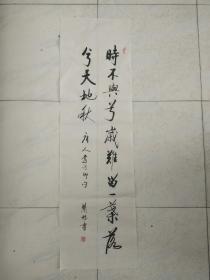 時不與兮歲難留一葉落
兮天地秋 唐人
書